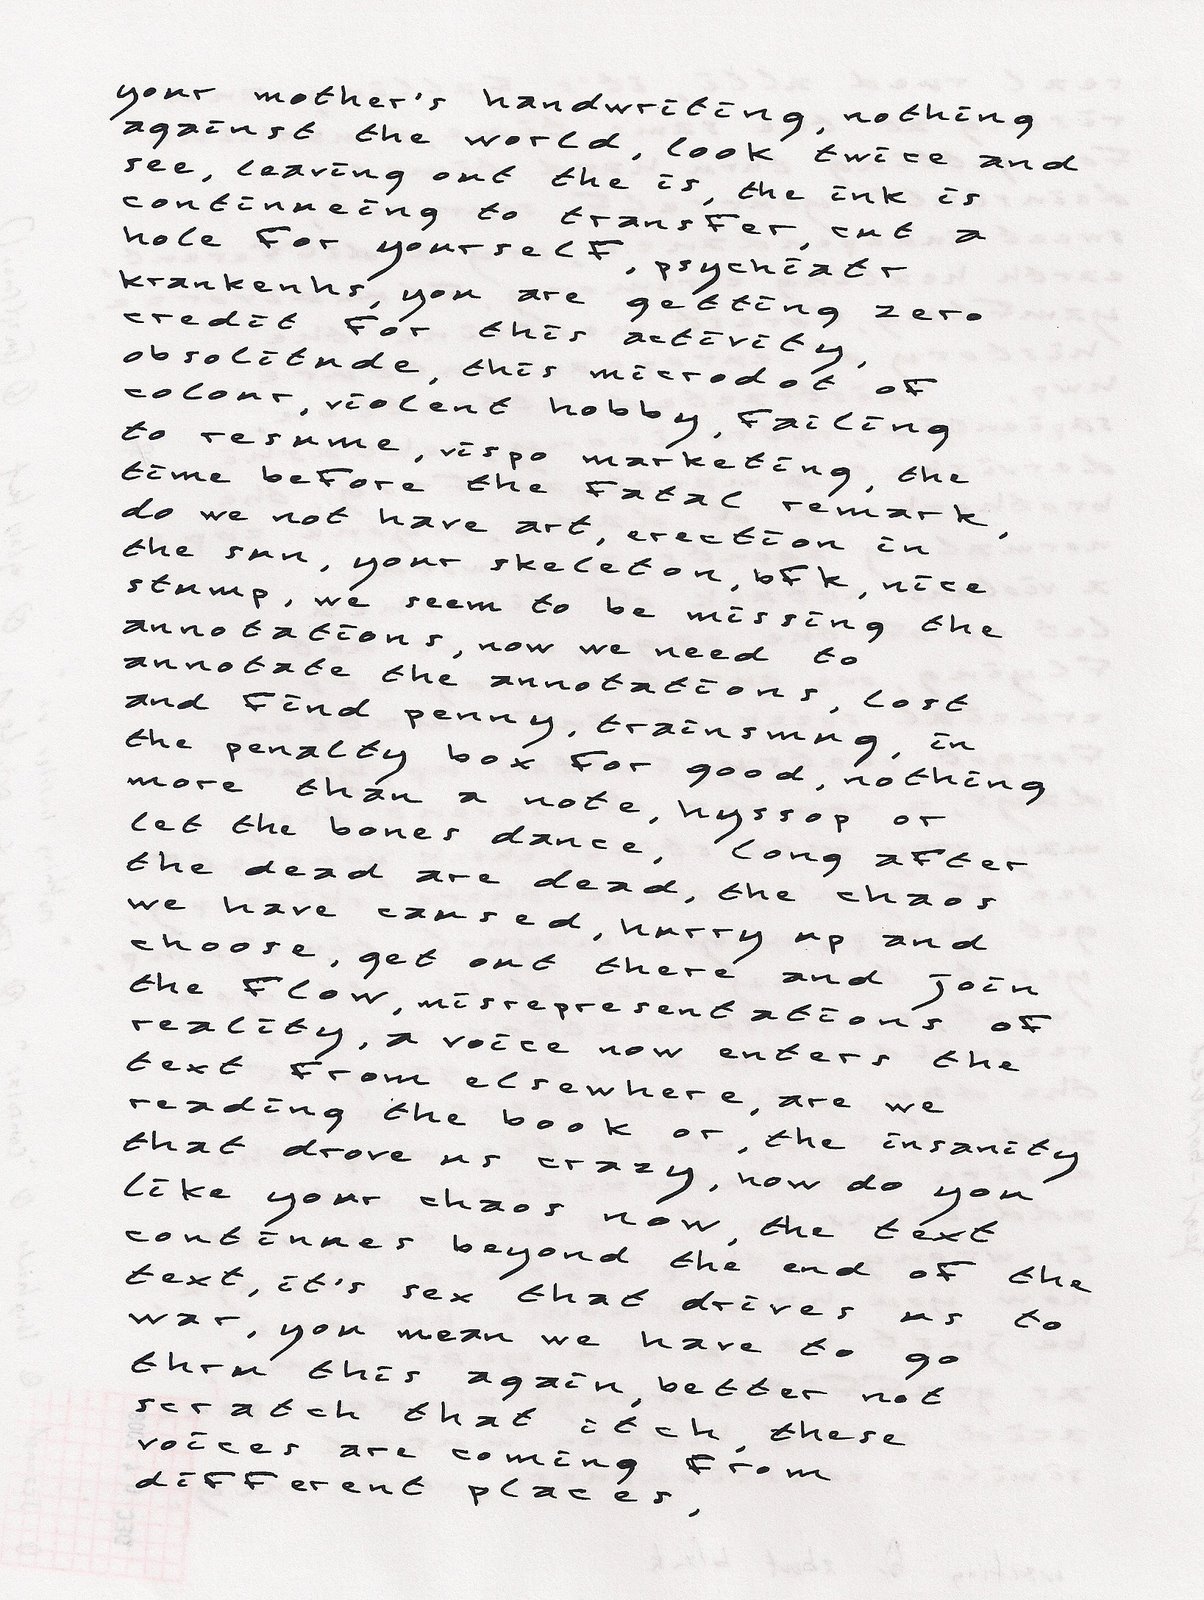 your mother's handwriting, nothing
against the world, look twice and
see, leaving out the is, the ink is
continueing to transfer, cut a
hole for yourself, psychiatr
krankenhs, you are getting zero
credit for this activity,
obsolitude, this microdot of
colour, violent hobby, failing
to resume, vispo marketing, the
time before the fatal remark,
do we not have art, erection in
the sun, your skeleton, bfk, nice
stump, we seem to be missing the
annotations, now we need to
annotate the annotations, lost
and find penny, trainsmug, in
the penalty box for good, nothing
more than a note, hyssop or
let the bones dance, long after
the dead are dead, the chaos
we have caused, hurry up and
choose, get out there and join
the flow, misrepresentations of
reality, a voice now enters the
text from elsewhere, are we
reading the book or, the insanity
that drove us crazy, how do you
like your chaos now, the text
continues beyond the end of the
text, it's sex that drives us to
war, you mean we have to go
thru this again, better not
scratch that itch, these
voices are coming from
different places,